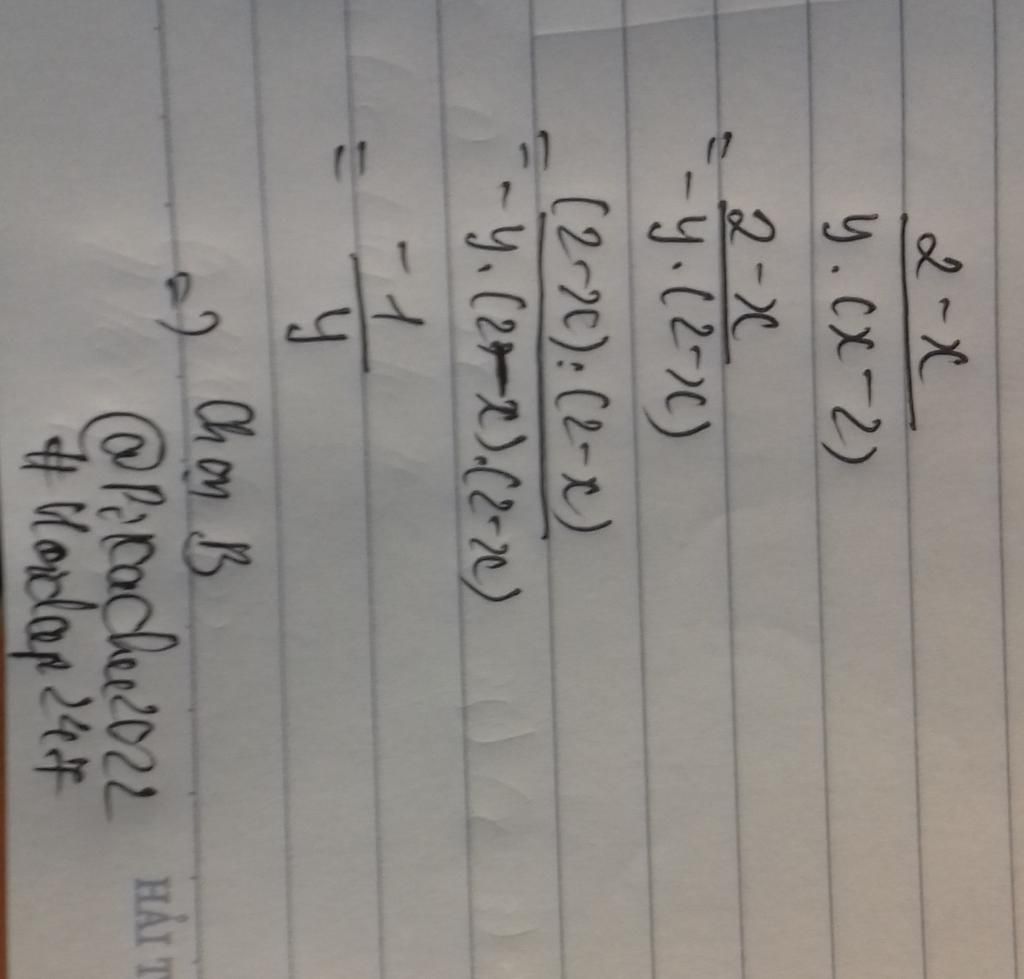 2 - x
y . (x - 2)
= 2 - x
- y . (2 - x)
= (2 - x) : (2 - x)
- y . (2 - x) . (2 - x)
= - 1
y
=) Chọn B
@Pikachu2022
# Hoidap247
HẢI T